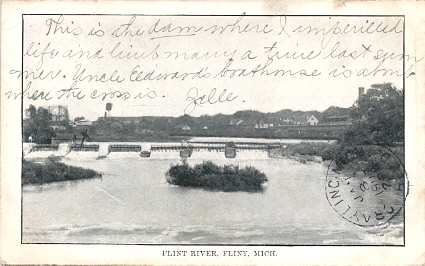 This is the dam where I imperilled
life and limb many a time last sum
mer. Uncle Edward's boathouse is about
where the cross is. Zelle.
GRAYLING
FLINT RIVER, FLINT, MICH.